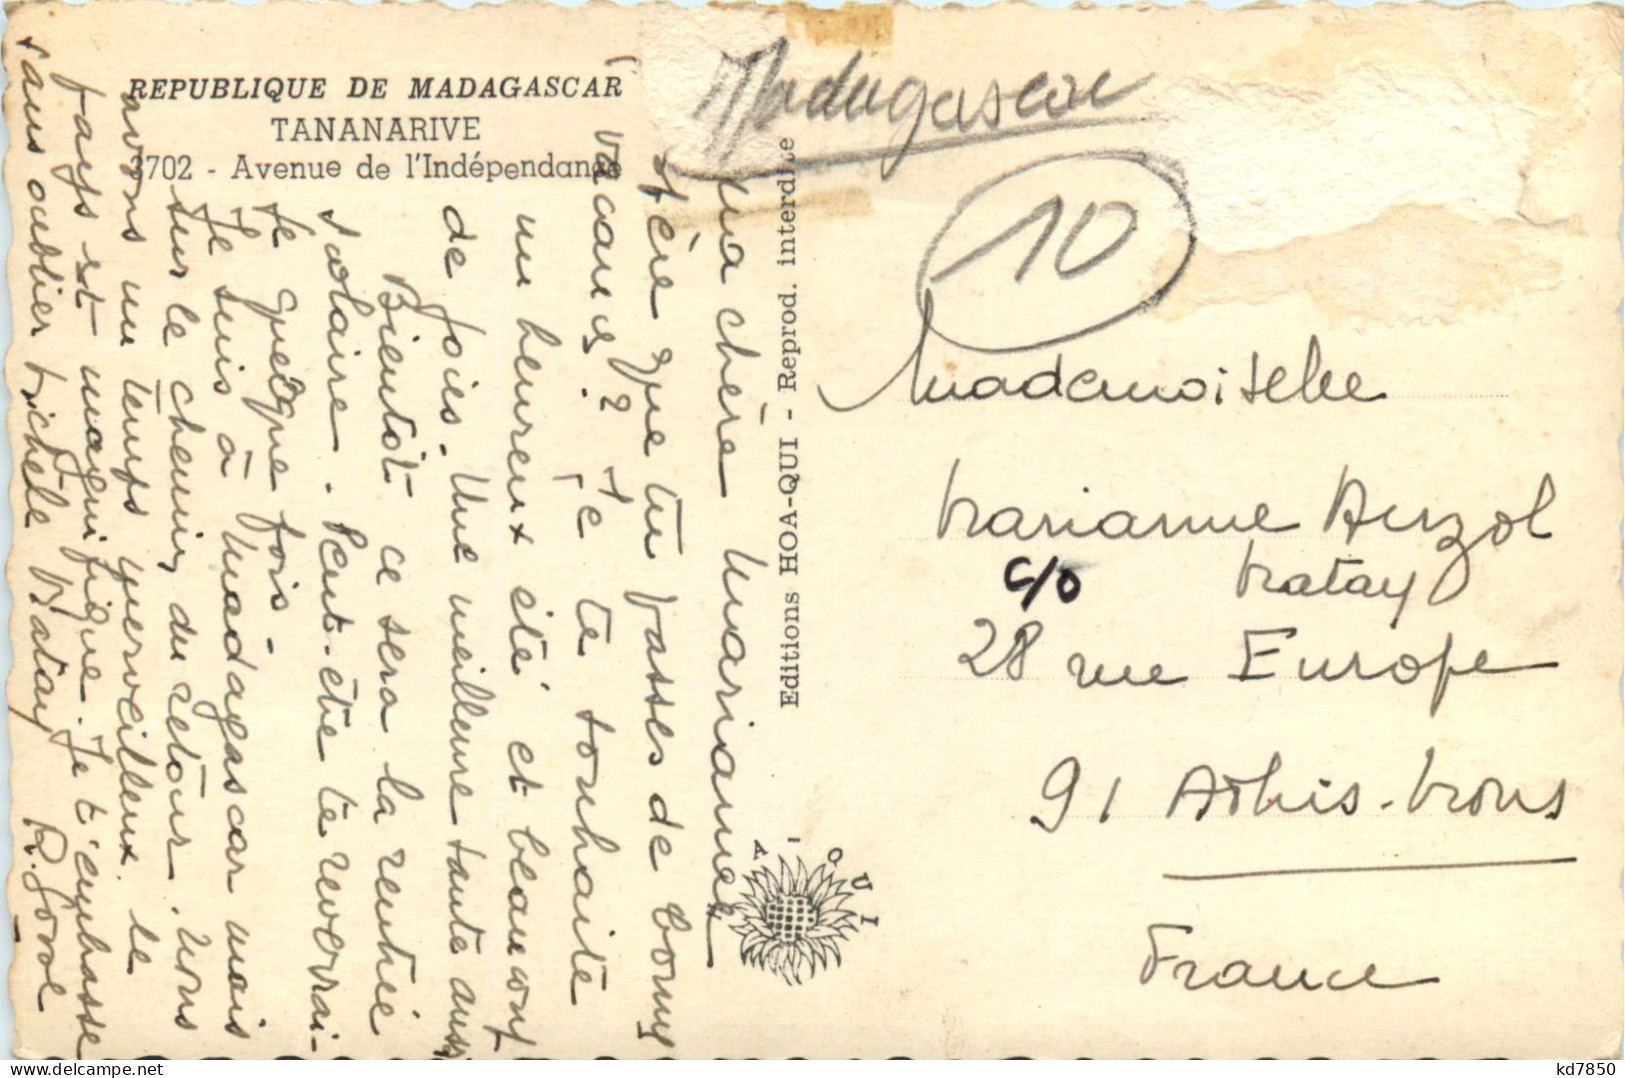 REPUBLIQUE DE MADAGASCAR
TANANARIVE
3702 - Avenue de l'Indépendance
Madagascar
10
Ma chère Marianne
J'éspère que tu passes de bonnes
vacances? Je te souhaite
un heureux été et beaucoup
de joies. Une meilleure santé aussi
Bientôt ce sera la rentrée
scolaire. Peut-être te reverrai-
Je quelque fois.
Je suis à Madagascar mais
sur le chemin du retour. Nous
avons un temps merveilleux. Le
pays est magnifique. Je t'embrasse
sans oublier Michèle Matay.
Editions HOA-QUI - Reprod. interdite
A - QUI
Mademoiselle
Marianne
c/o Matay
28 rue Europe
91 Athis-Mons
France
kd7850